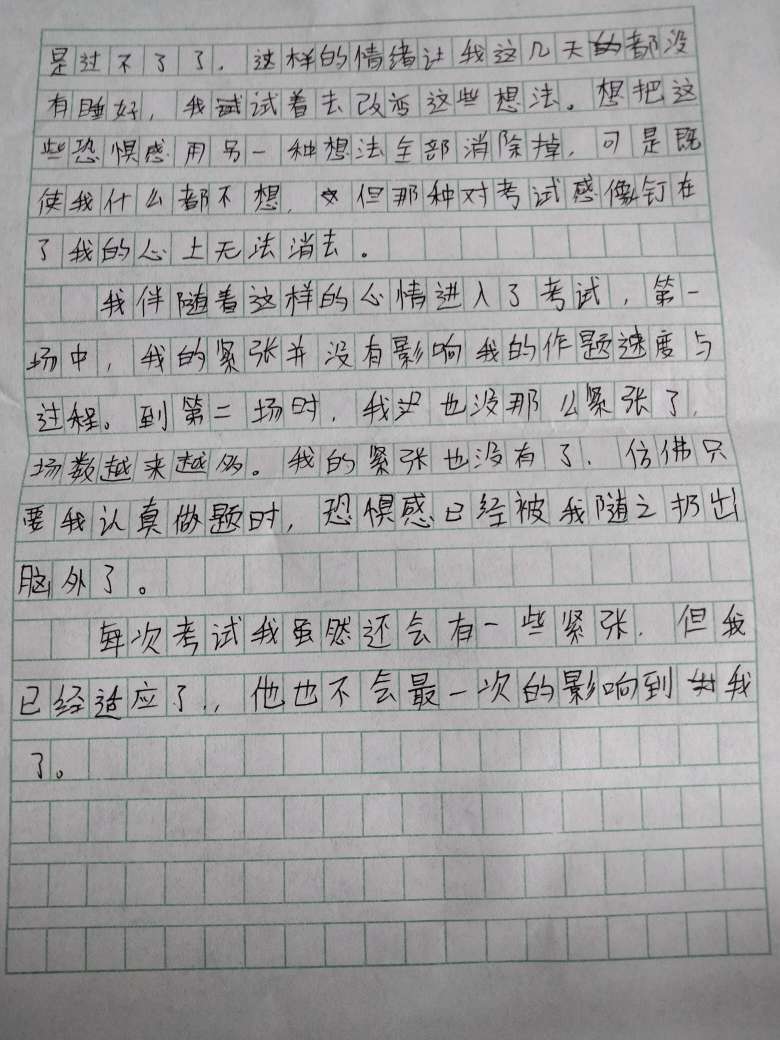 是过不了了，这样的情绪让我这几天都没
有睡好，我试着去改变这些想法。想把这
些恐惧感用另一种想法全部消除掉，可是既
使我什么都不想，但那种对考试感像钉在
了我的心上无法消去。
我伴随着这样的心情进入了考试，第一
场中，我的紧张并没有影响我的作题速度与
过程。到第二场时，我也没那么紧张了，
场数越来越多。我的紧张也没有了，仿佛只
要我认真做题时，恐惧感已经被我随之扔出
脑外了。
每次考试我虽然还会有一些紧张，但我
已经适应了，他也不会最一次的影响到我
了。